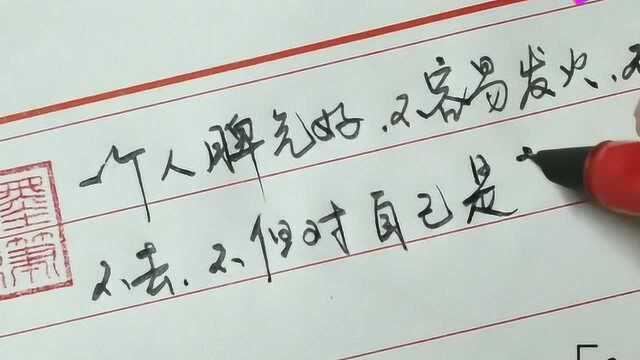 一个人脾气好、不容易发火、不
不去、不但对自己是